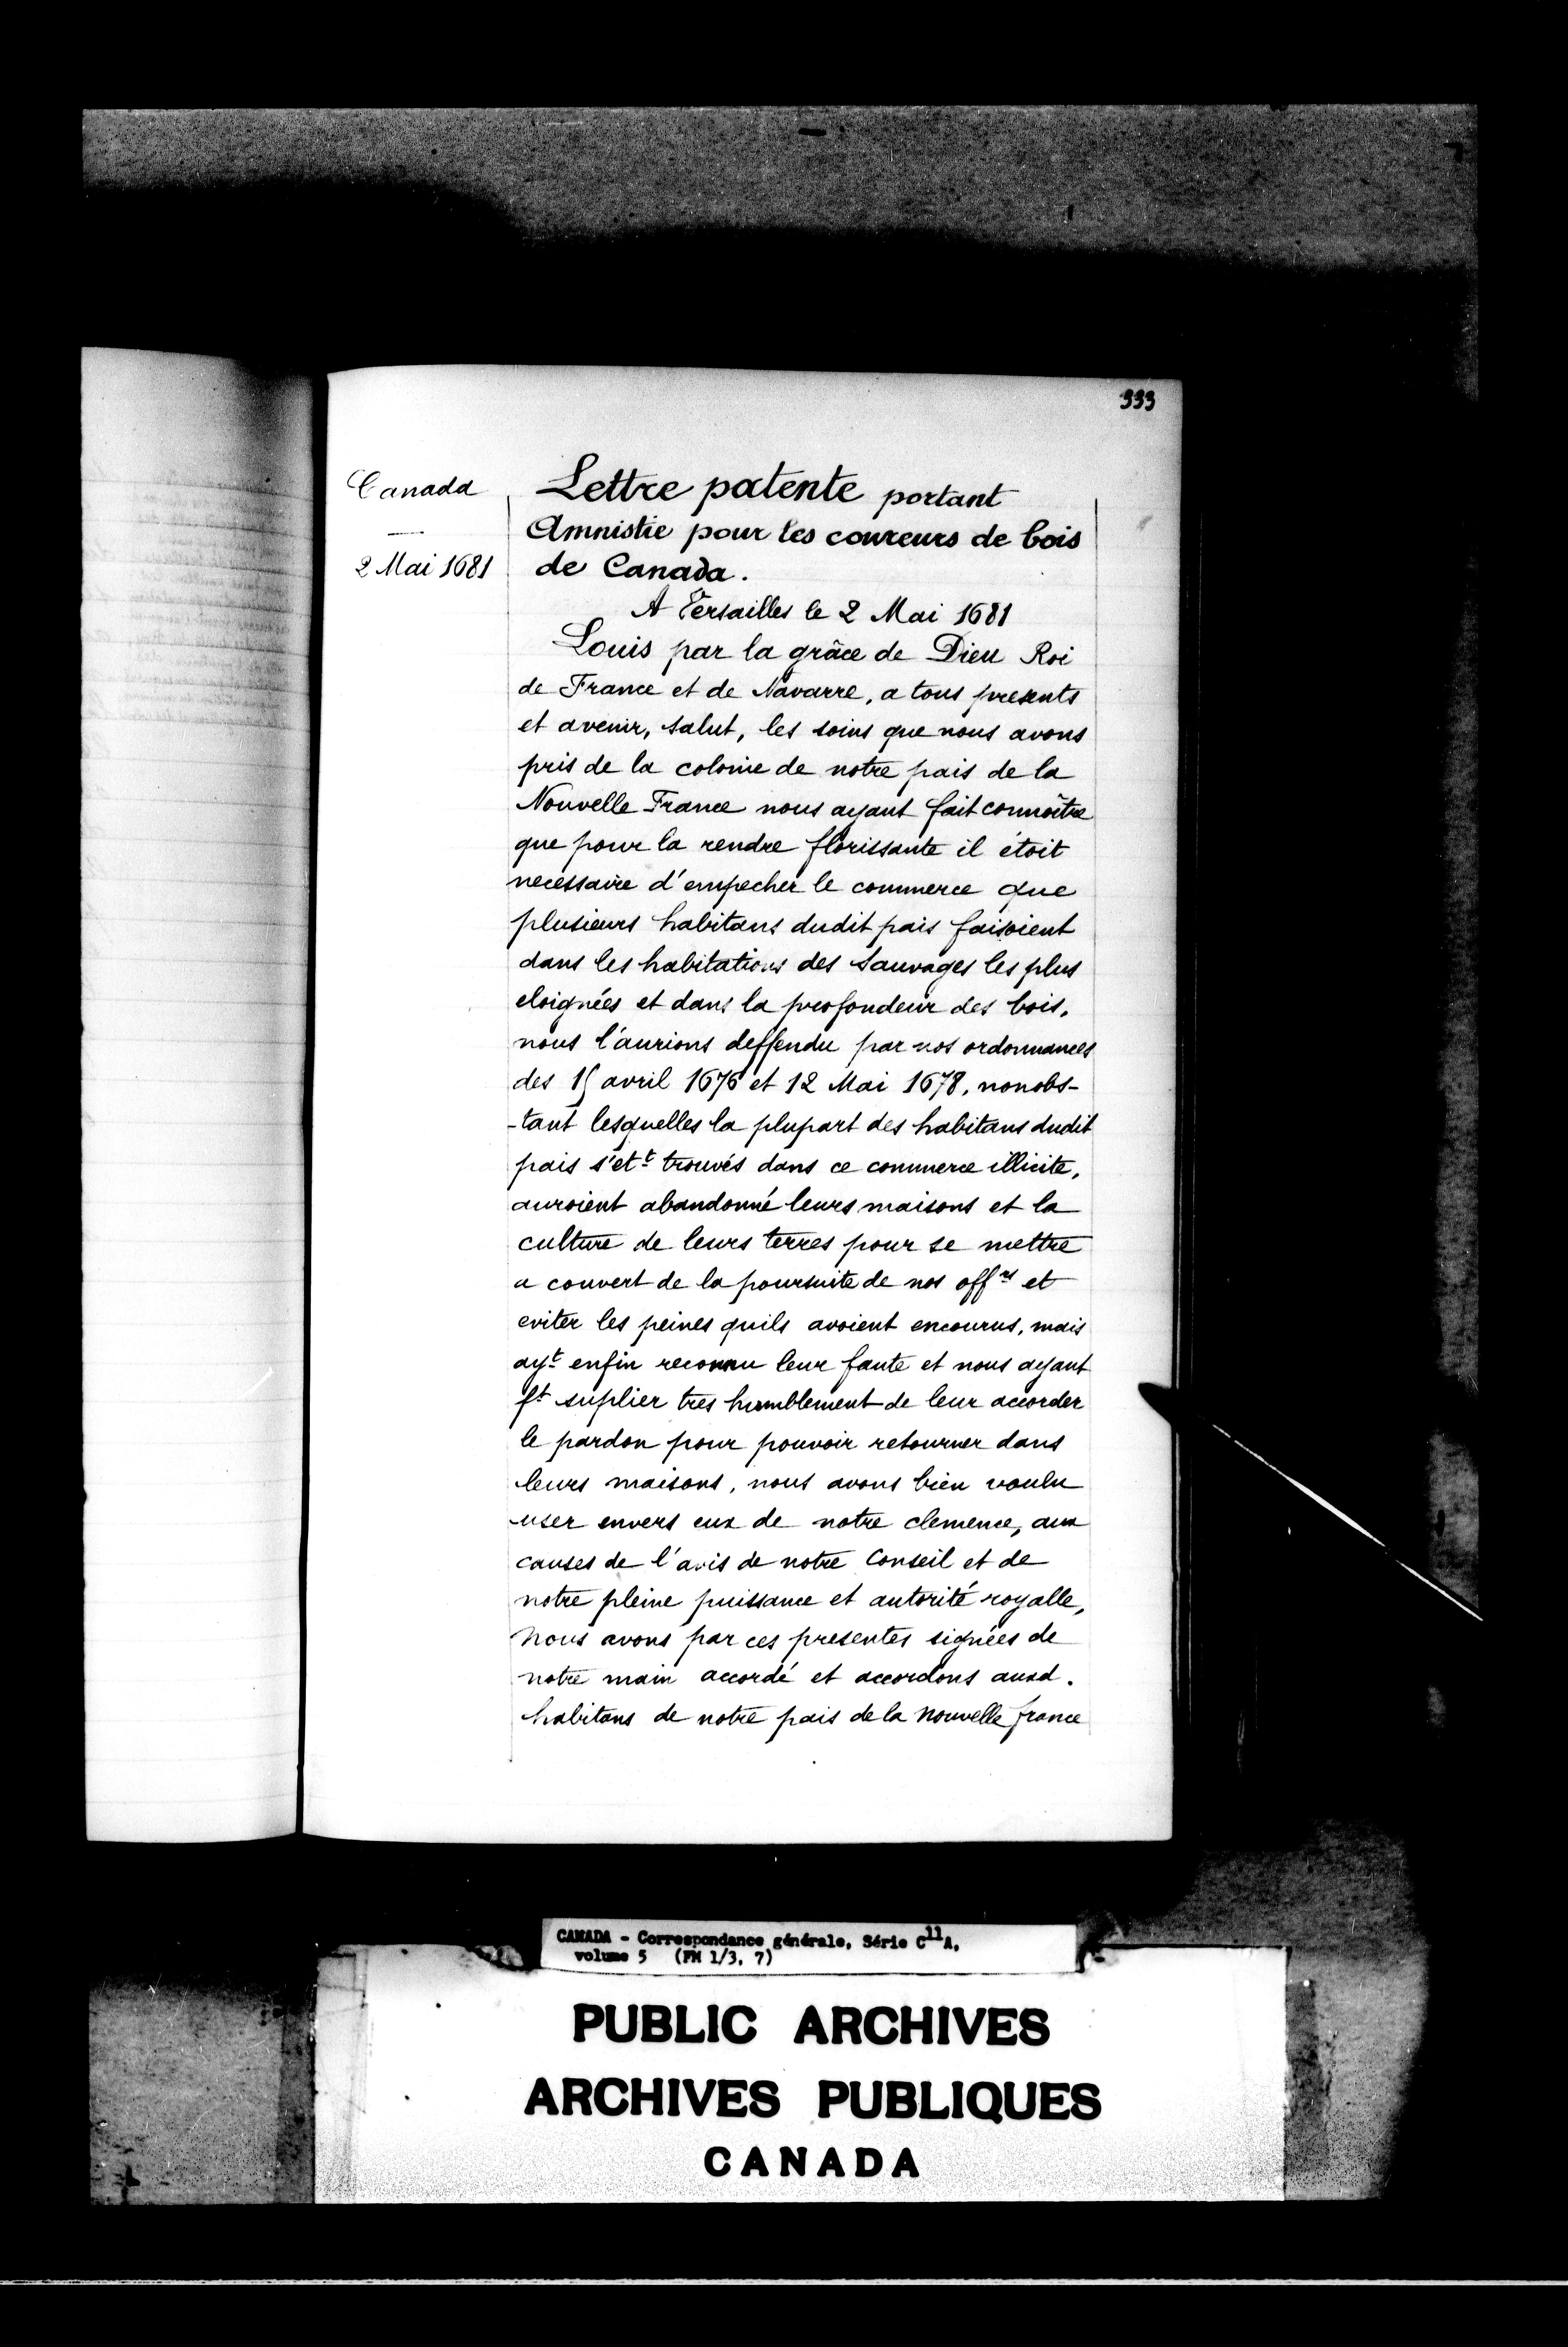 333
Canada
2 Mai 1681
Lettre patente portant
Amnistie pour les coureurs de bois
de Canada.
A Versailles le 2 Mai 1681
Louis par la grâce de Dieu Roi
de France et de Navarre, a tous presents
et avenir, salut, les soins que nous avons
pris de la colonie de notre pais de la
Nouvelle France nous ayant fait connoître
que pour la rendre florissante il étoit
necessaire d'empecher le commerce que
plusieurs habitans dudit pais faisoient
dans les habitations des Sauvages les plus
eloignées et dans la profondeur des bois,
nous l'aurions deffendu par nos ordonnances
des 15 avril 1676 et 12 Mai 1678, nonobs-
-tant lesquelles la plupart des habitans dudit
pais s'ett trouvés dans ce commerce illicite,
auroient abandonné leurs maisons et la
culture de leurs terres pour se mettre
a couvert de la poursuite de nos offrs et
eviter les peines quils avoient encourus, mais
ayt enfin reconnu leur faute et nous ayant
ft suplier tres humblement de leur accorder
le pardon pour pouvoir retourner dans
leurs maisons, nous avons bien voulu
user envers eux de notre clemence, aux
causes de l'avis de notre Conseil et de
notre pleine puissance et autorité royalle,
Nous avons par ces presentes signées de
notre main accordé et accordons auxd.
habitans de notre pais de la Nouvelle france
CANADA - Correspondance générale, Série C11A,
volume 5 (FM 1/3, 7)
PUBLIC ARCHIVES
ARCHIVES PUBLIQUES
CANADA